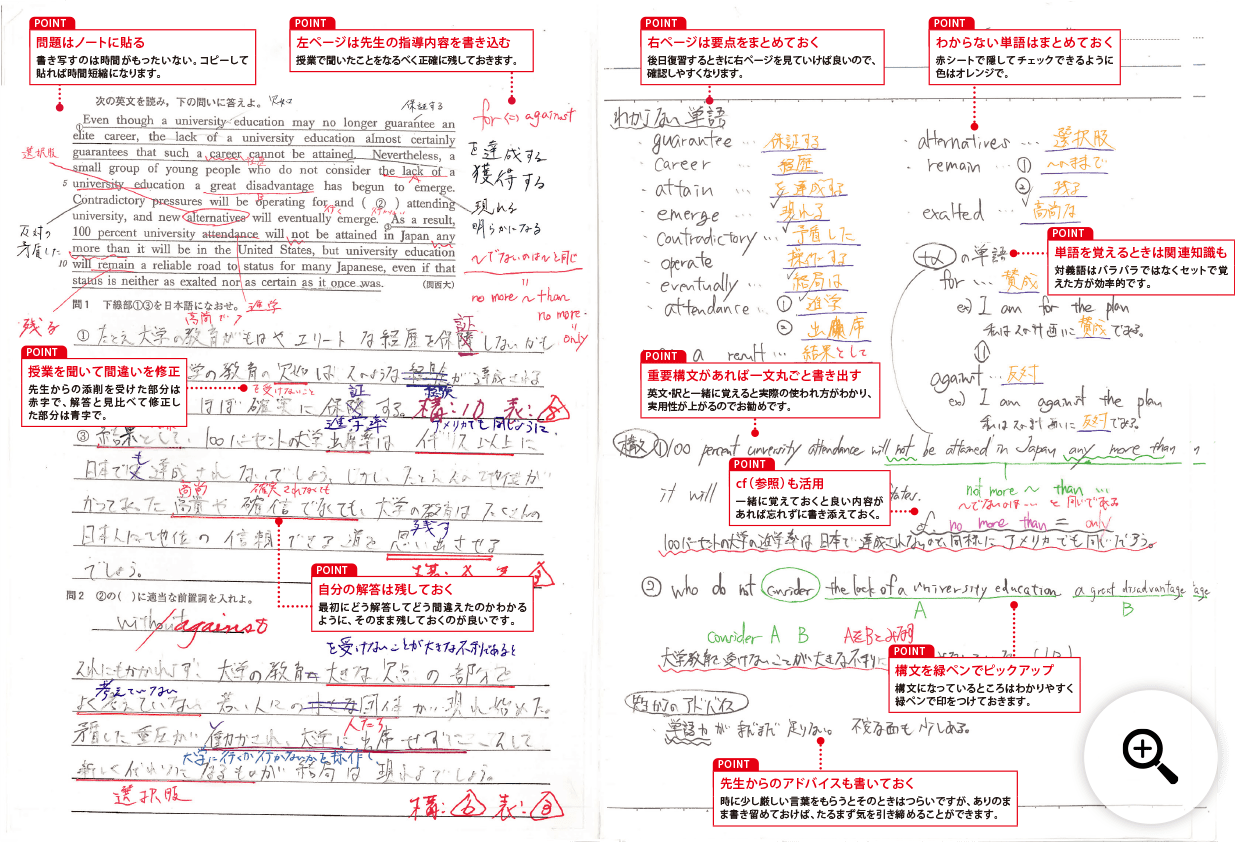 POINT
問題はノートに貼る
書き写すのは時間がもったいない。コピーして
貼れば時間短縮になります。
POINT
左ページは先生の指導内容を書き込む
授業で聞いたことをなるべく正確に残しておきます。
次の英文を読み，下の問いに答えよ。
保証する
Even though a university education may no longer guarantee an
elite career, the lack of a university education almost certainly
guarantees that such a career cannot be attained. Nevertheless, a
small group of young people who do not consider the lack of a
5 university education a great disadvantage has begun to emerge.
Contradictory pressures will be operating for and ( ② ) attending
university, and new alternatives will eventually emerge. As a result,
100 percent university attendance will not be attained in Japan any
more than it will be in the United States, but university education
10 will remain a reliable road to status for many Japanese, even if that
status is neither as exalted nor as certain as it once was.
(関西大)
選択肢
反対の
矛盾した
残る
for ⇔ against
を達成する
獲得する
現れる
明らかになる
〜でないのは〜と同じ
no more 〜 than
no more
only
問1 下線部①③を日本語になおせ。
進学
①たとえ大学の教育がもはやエリートな経歴を保障しないがも
証
POINT
授業を聞いて間違いを修正
先生からの添削を受けた部分は
赤字で、解答と見比べて修正し
た部分は青字で。
学の教育の欠如はそのような経験が達成される
を受けないこと
ほぼ確実に保障する。
構：10 表：
進学率
アメリカでも同じように
③結果として、100パーセントの大学出席率は イギリス以上に
日本でも達成されないでしょう。しかし、たとえ
高尚
確実でなくても
日本人に地位の信頼できる道を思い出させる
残す
でしょう。
POINT
自分の解答は残しておく
最初にどう解答してどう間違えたのかわかる
ように、そのまま残しておくのが良いです。
問2 ②の( )に適当な前置詞を入れよ。
without against
を受けないことが大きな不利であると
それにもかかわらず、大学の教育
考えていない
よく考えていない 若い人々の
人たち
矛盾した重圧が働かされ、大学に出席せずに
大学に行くか行かないかと
新しく代わりになるものが結局は現れるでしょう。
選択肢
POINT
右ページは要点をまとめておく
後日復習するときに右ページを見ていけば良いので、
確認しやすくなります。
POINT
わからない単語はまとめておく
赤シートで隠してチェックできるように
色はオレンジで。
わからない単語
・guarantee … 保証する
・career … 経歴
・attain … を達成する
・emerge … 現れる
・contradictory … 矛盾した
・operate … 操作する
・eventually … 結局は
・attendance … ① 進学
② 出席
a result … 結果として
・alternatives … 選択肢
・remain … ① 〜のままで
② 残る
exalted … 高尚な
POINT
単語を覚えるときは関連知識も
対義語はバラバラではなくセットで覚
えた方が効率的です。
+αの単語
for … 賛成
ex) I am for the plan
私はその計画に賛成である。
against … 反対
ex) I am against the plan
私はその計画に反対である。
POINT
重要構文があれば一文丸ごと書き出す
英文・訳と一緒に覚えると実際の使われ方がわかり、
実用性が上がるのでお勧めです。
構文 ① 100 percent university attendance will not be attained in Japan any more than
it will
POINT
cf（参照）も活用
一緒に覚えておくと良い内容が
あれば忘れずに書き添えておく。
not more 〜 than …
〜でないのは…と同じである
cf no more than = only
100パーセントの大学の進学率は日本で達成されないのと同様にアメリカでも同じだろう。
② who do not consider the lack of a university education a great disadvantage
A
B
consider A B
AをBとみなす
大学教育を受けないことが大きな不利に
POINT
構文を緑ペンでピックアップ
構文になっているところはわかりやすく
緑ペンで印をつけておきます。
先生からのアドバイス
・単語力がまだまだ足りない。 不安な面も少しある。
POINT
先生からのアドバイスも書いておく
時に少し厳しい言葉をもらうとそのときはつらいですが、ありのま
ま書き留めておけば、たるまず気を引き締めることができます。